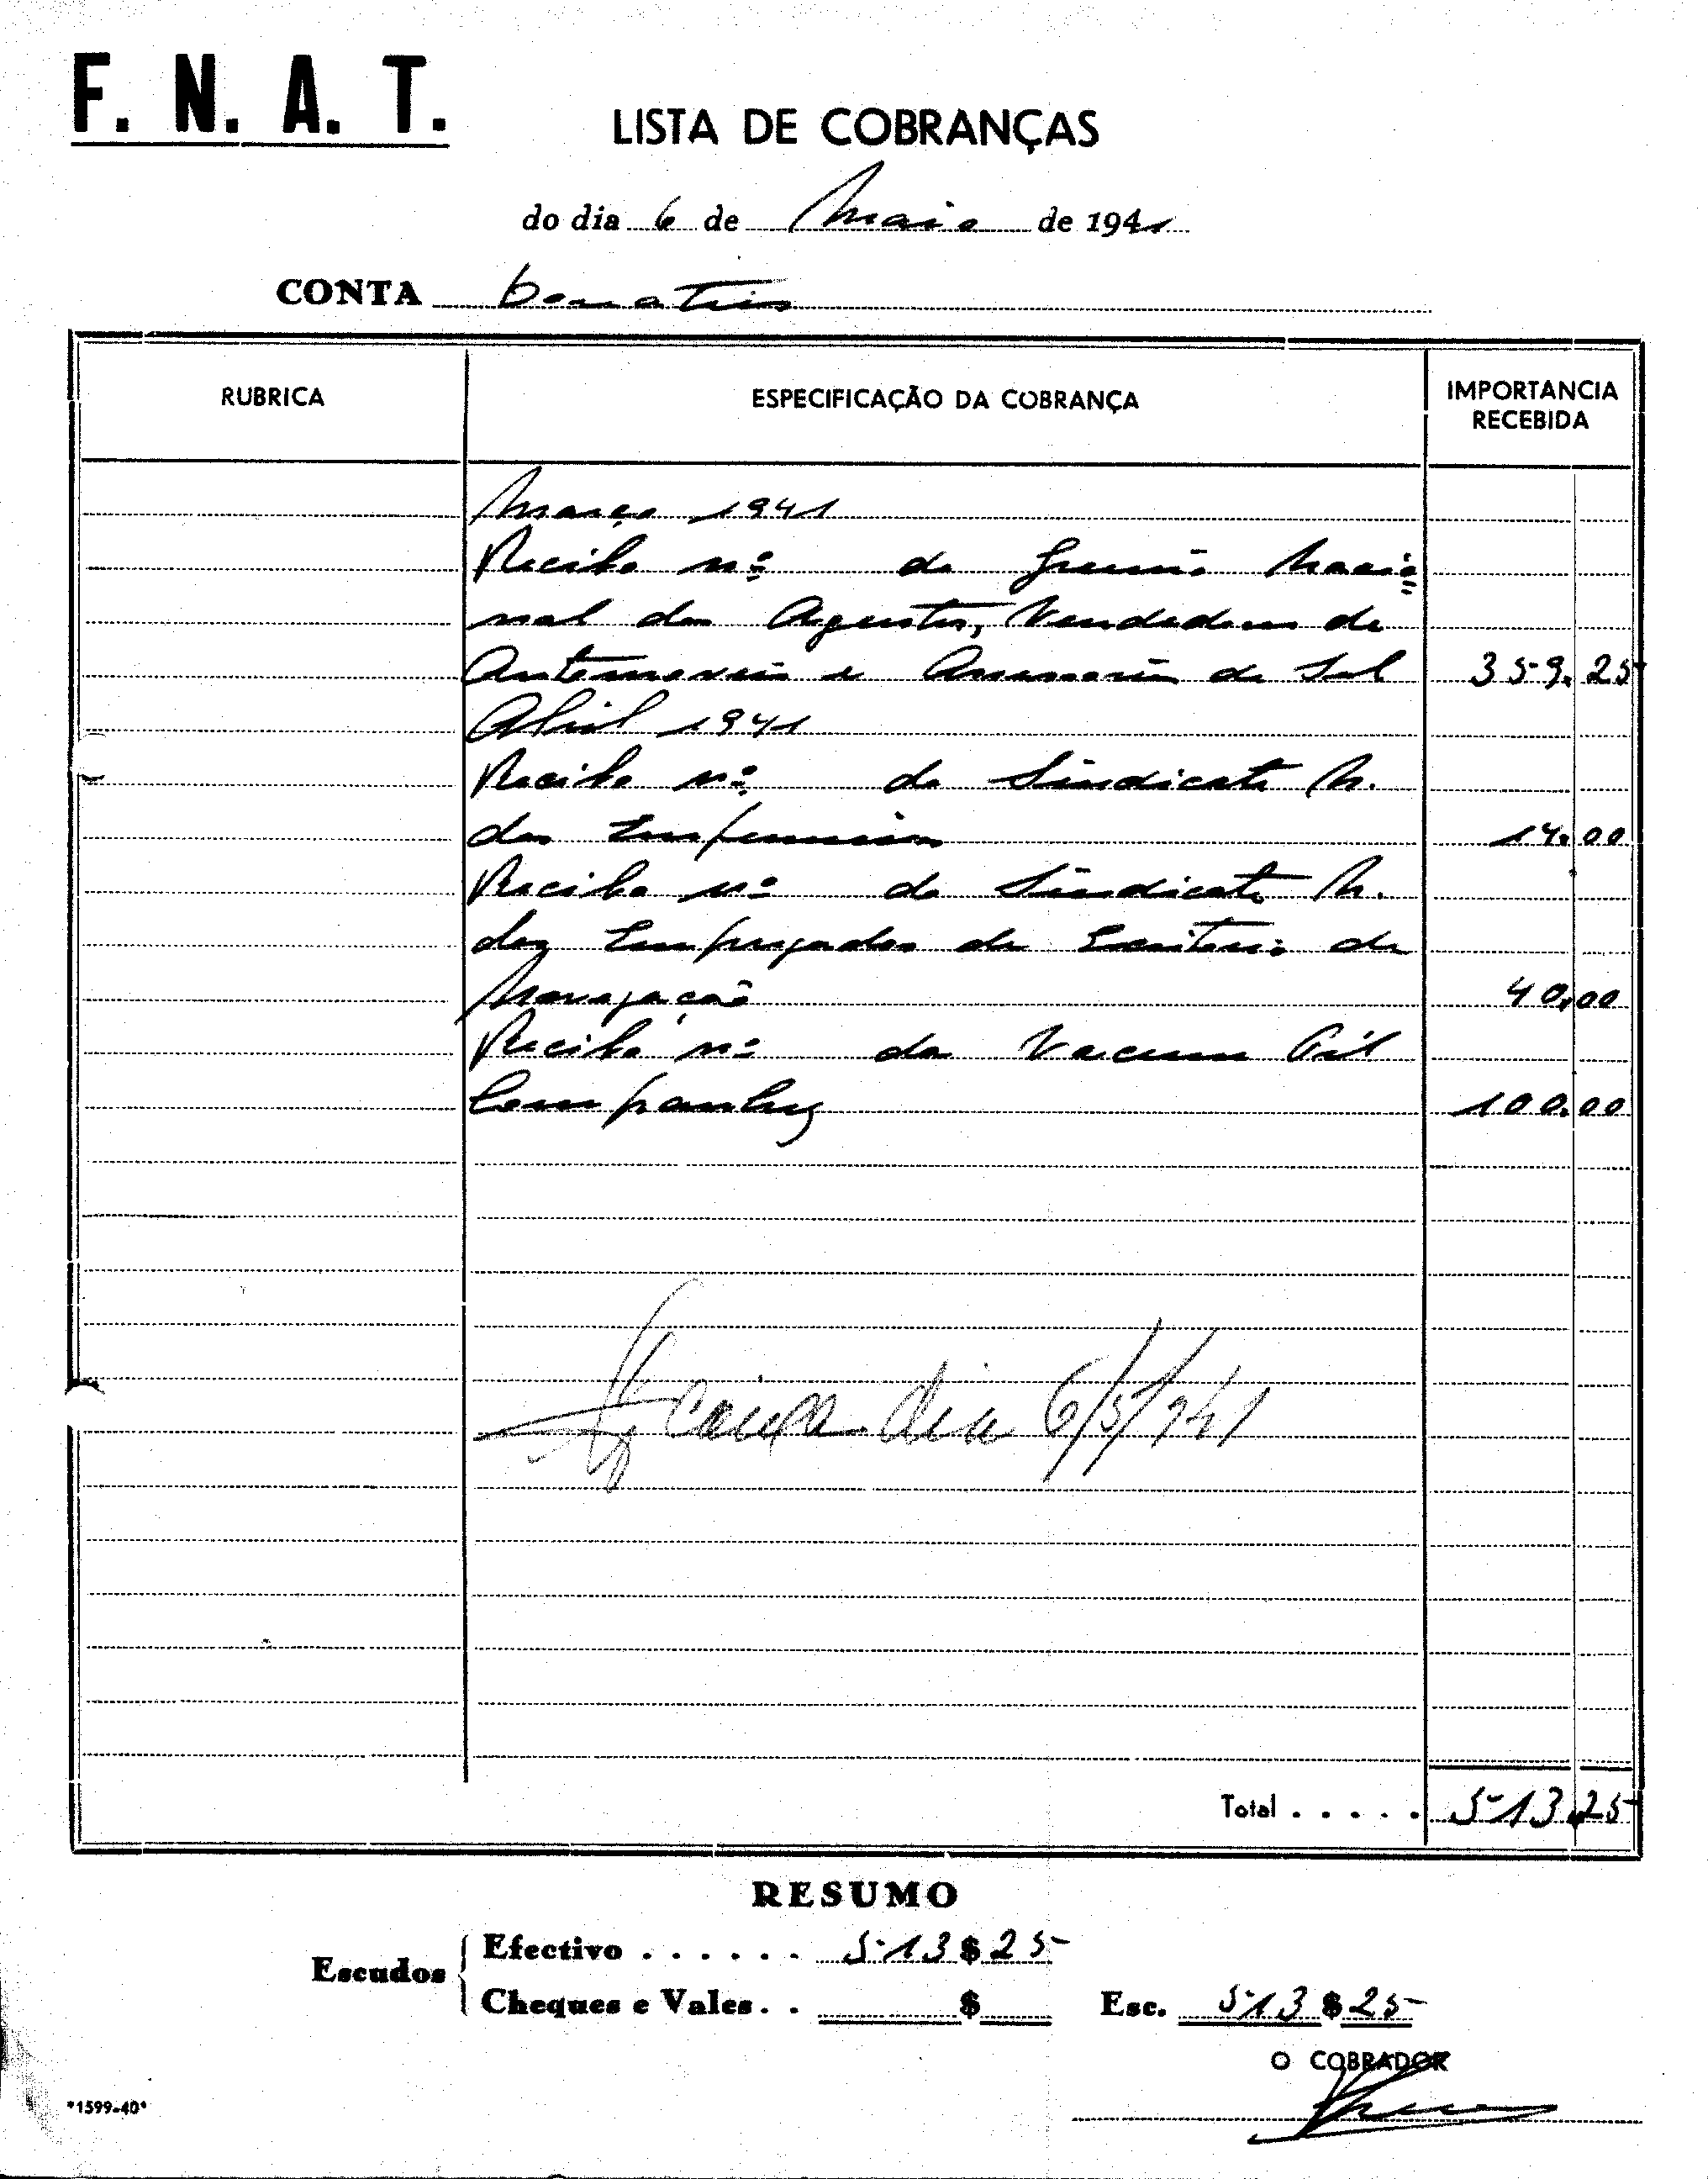 F. N. A. T.
LISTA DE COBRANÇAS
do dia 6 de Maio de 1941
CONTA Donativos
RUBRICA
ESPECIFICAÇÃO DA COBRANÇA
IMPORTANCIA
RECEBIDA
Março 1941
Recibo nº do Gremio Nacio=
nal dos Agentes, Vendedores de
Automoveis e Acessorios do Sul 359,25
Abril 1941
Recibo nº do Sindicato N.
dos 14,00
Recibo nº do Sindicato N.
dos Empregados de Escritorio de
Navegação 40,00
Recibo nº da Vacuum Oil
Company 100,00
Caixa dia 6/5/941
Total . . . . . 513,25
RESUMO
Escudos
Efectivo . . . . . . 513$25
Cheques e Vales . . $
Esc. 513$25
O COBRADOR
*1599-40*